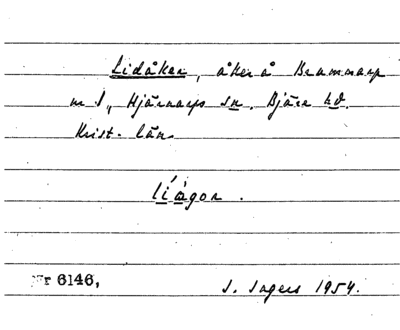 Lidåker, åker å Brammarp
nr 1, Hjärnarps sn. Bjäre hd.
Krist. län
líågor.
Nr 6146,
S. Ingers 1954.